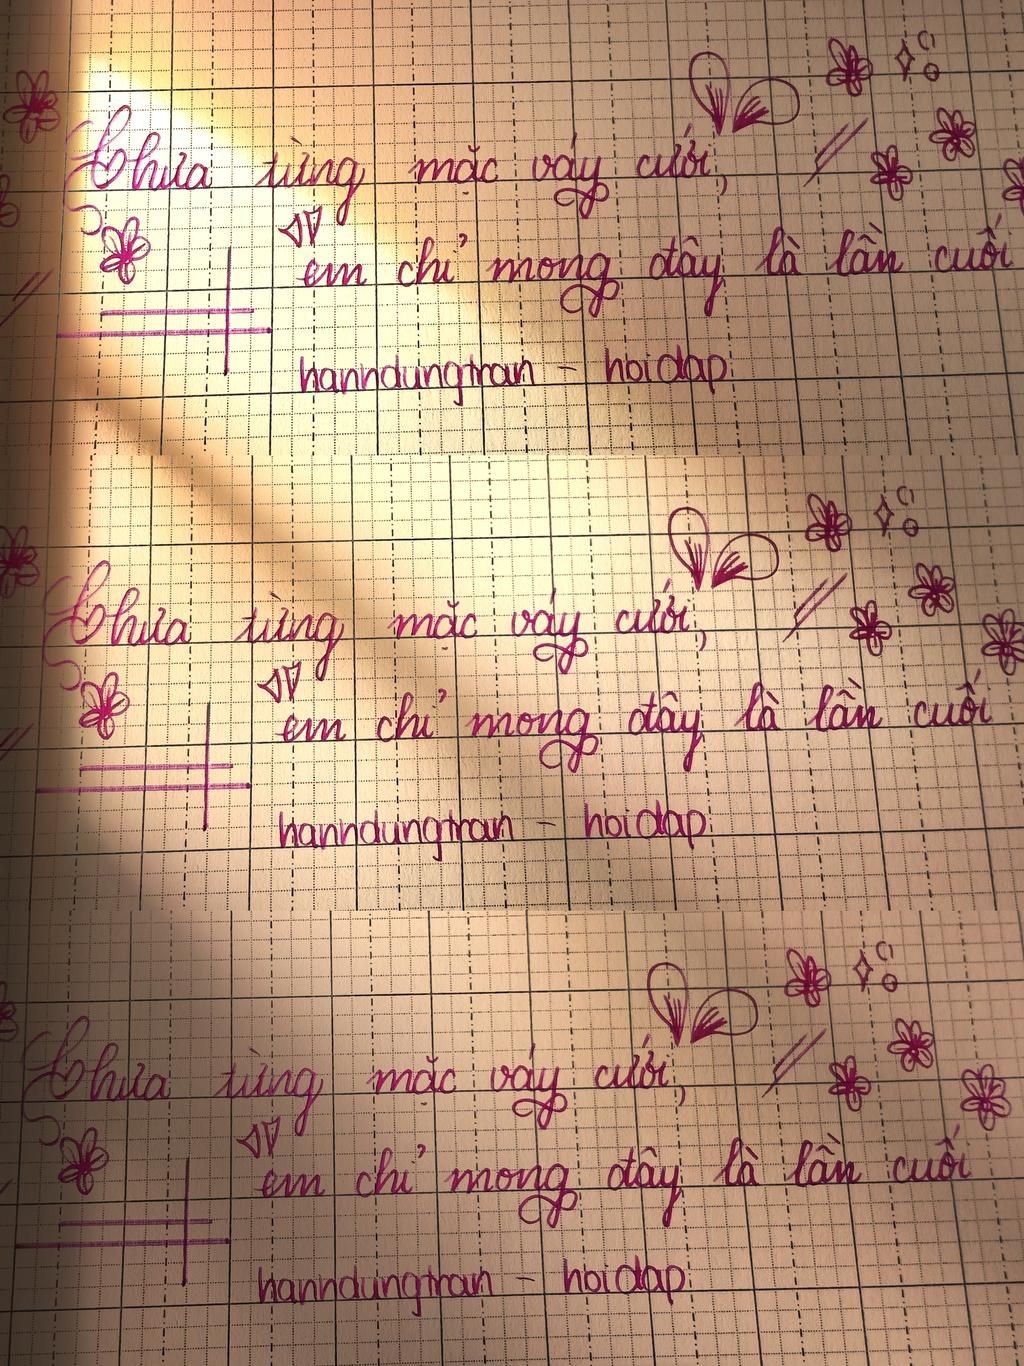 Chưa từng mặc váy cưới,
em chỉ mong đây là lần cuối
hanndungtran - hoidap.
Chưa từng mặc váy cưới,
em chỉ mong đây là lần cuối
hanndungtran - hoidap.
Chưa từng mặc váy cưới,
em chỉ mong đây là lần cuối
hanndungtran - hoidap.